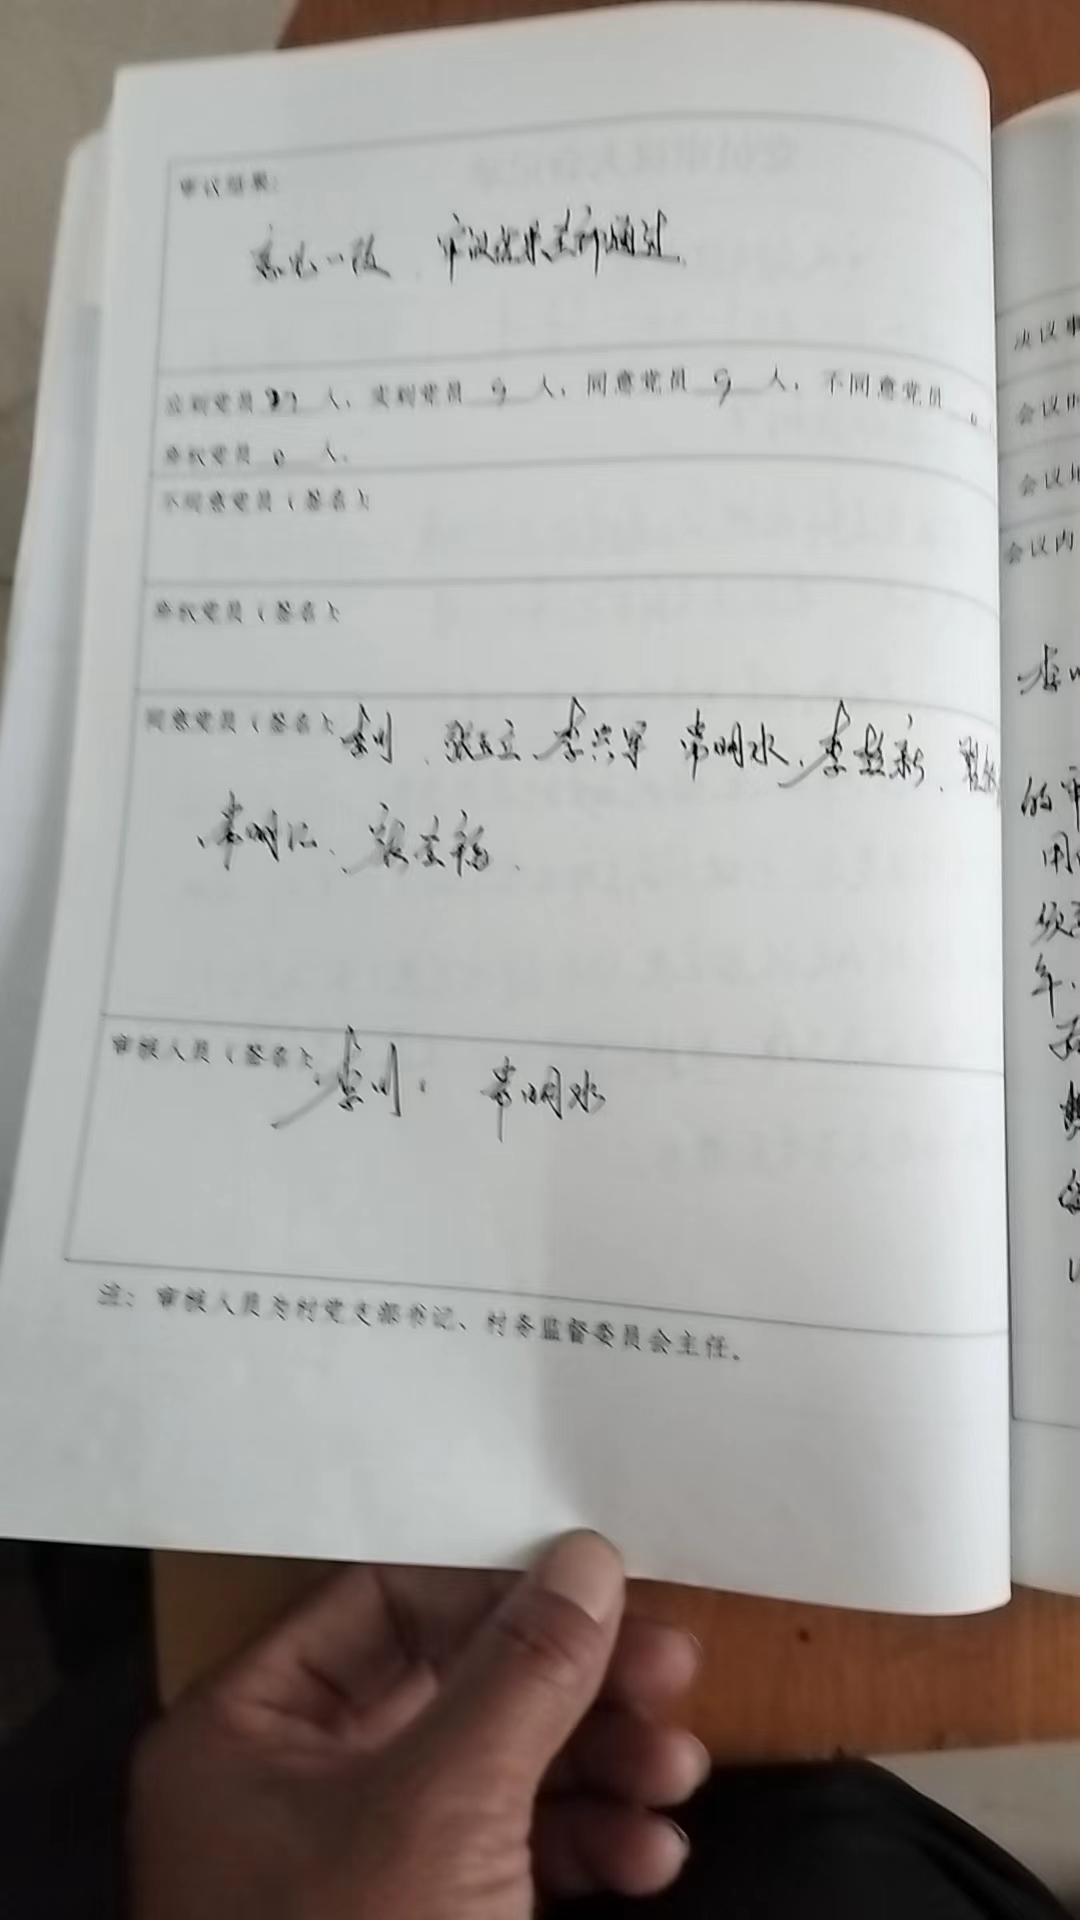 审议结果：
意见一致、审议结果全部通过
应到党员 27 人，实到党员 9 人，同意党员 9 人，不同意党员 0
弃权党员 0 人。
不同意党员（签名）：
弃权党员（签名）：
同意党员（签名）：李川、张玉立 李兴军 常明水、李
常明江、张
审核人员（签名）：李川、常明水
注：审核人员为村党支部书记、村务监督委员会主任。
决议事
会议时
会议地
会议内
的
用
年、